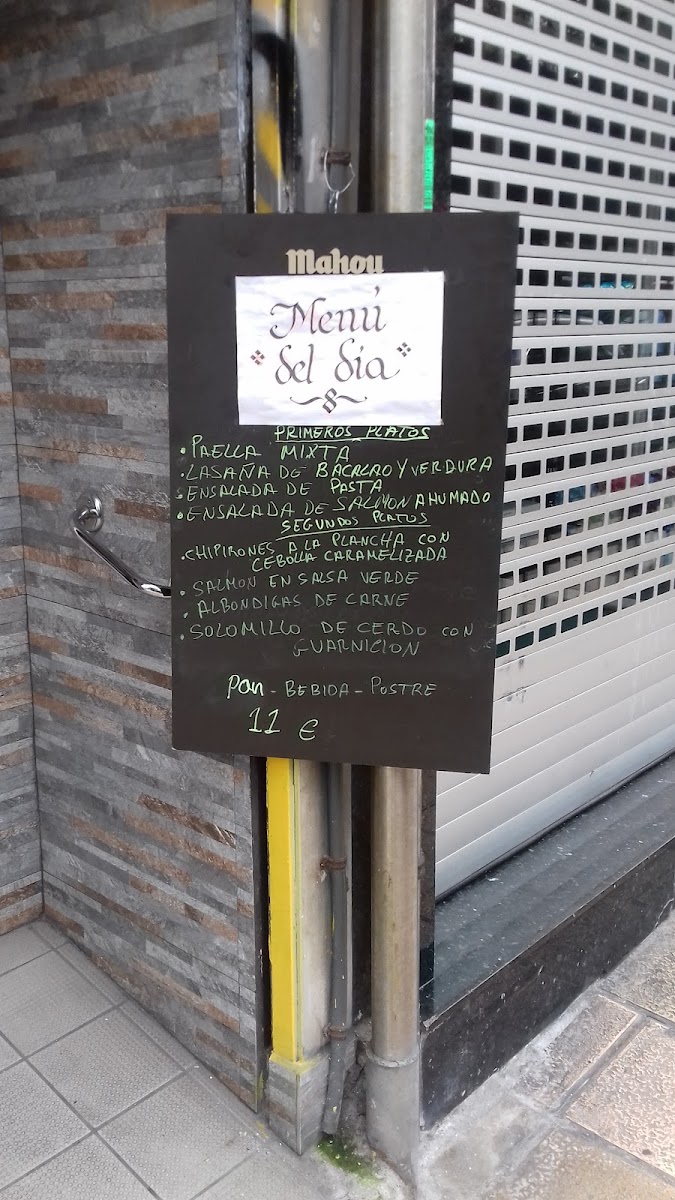 Mahou
Menú
del día
PRIMEROS PLATOS
• PAELLA MIXTA
• LASAÑA DE BACALAO Y VERDURA
• ENSALADA DE PASTA
• ENSALADA DE SALMON AHUMADO
SEGUNDOS PLATOS
• CHIPIRONES A LA PLANCHA CON
CEBOLLA CARAMELIZADA
• SALMON EN SALSA VERDE
• ALBONDIGAS DE CARNE
• SOLOMILLO DE CERDO CON
GUARNICION
Pan - BEBIDA - POSTRE
11 €